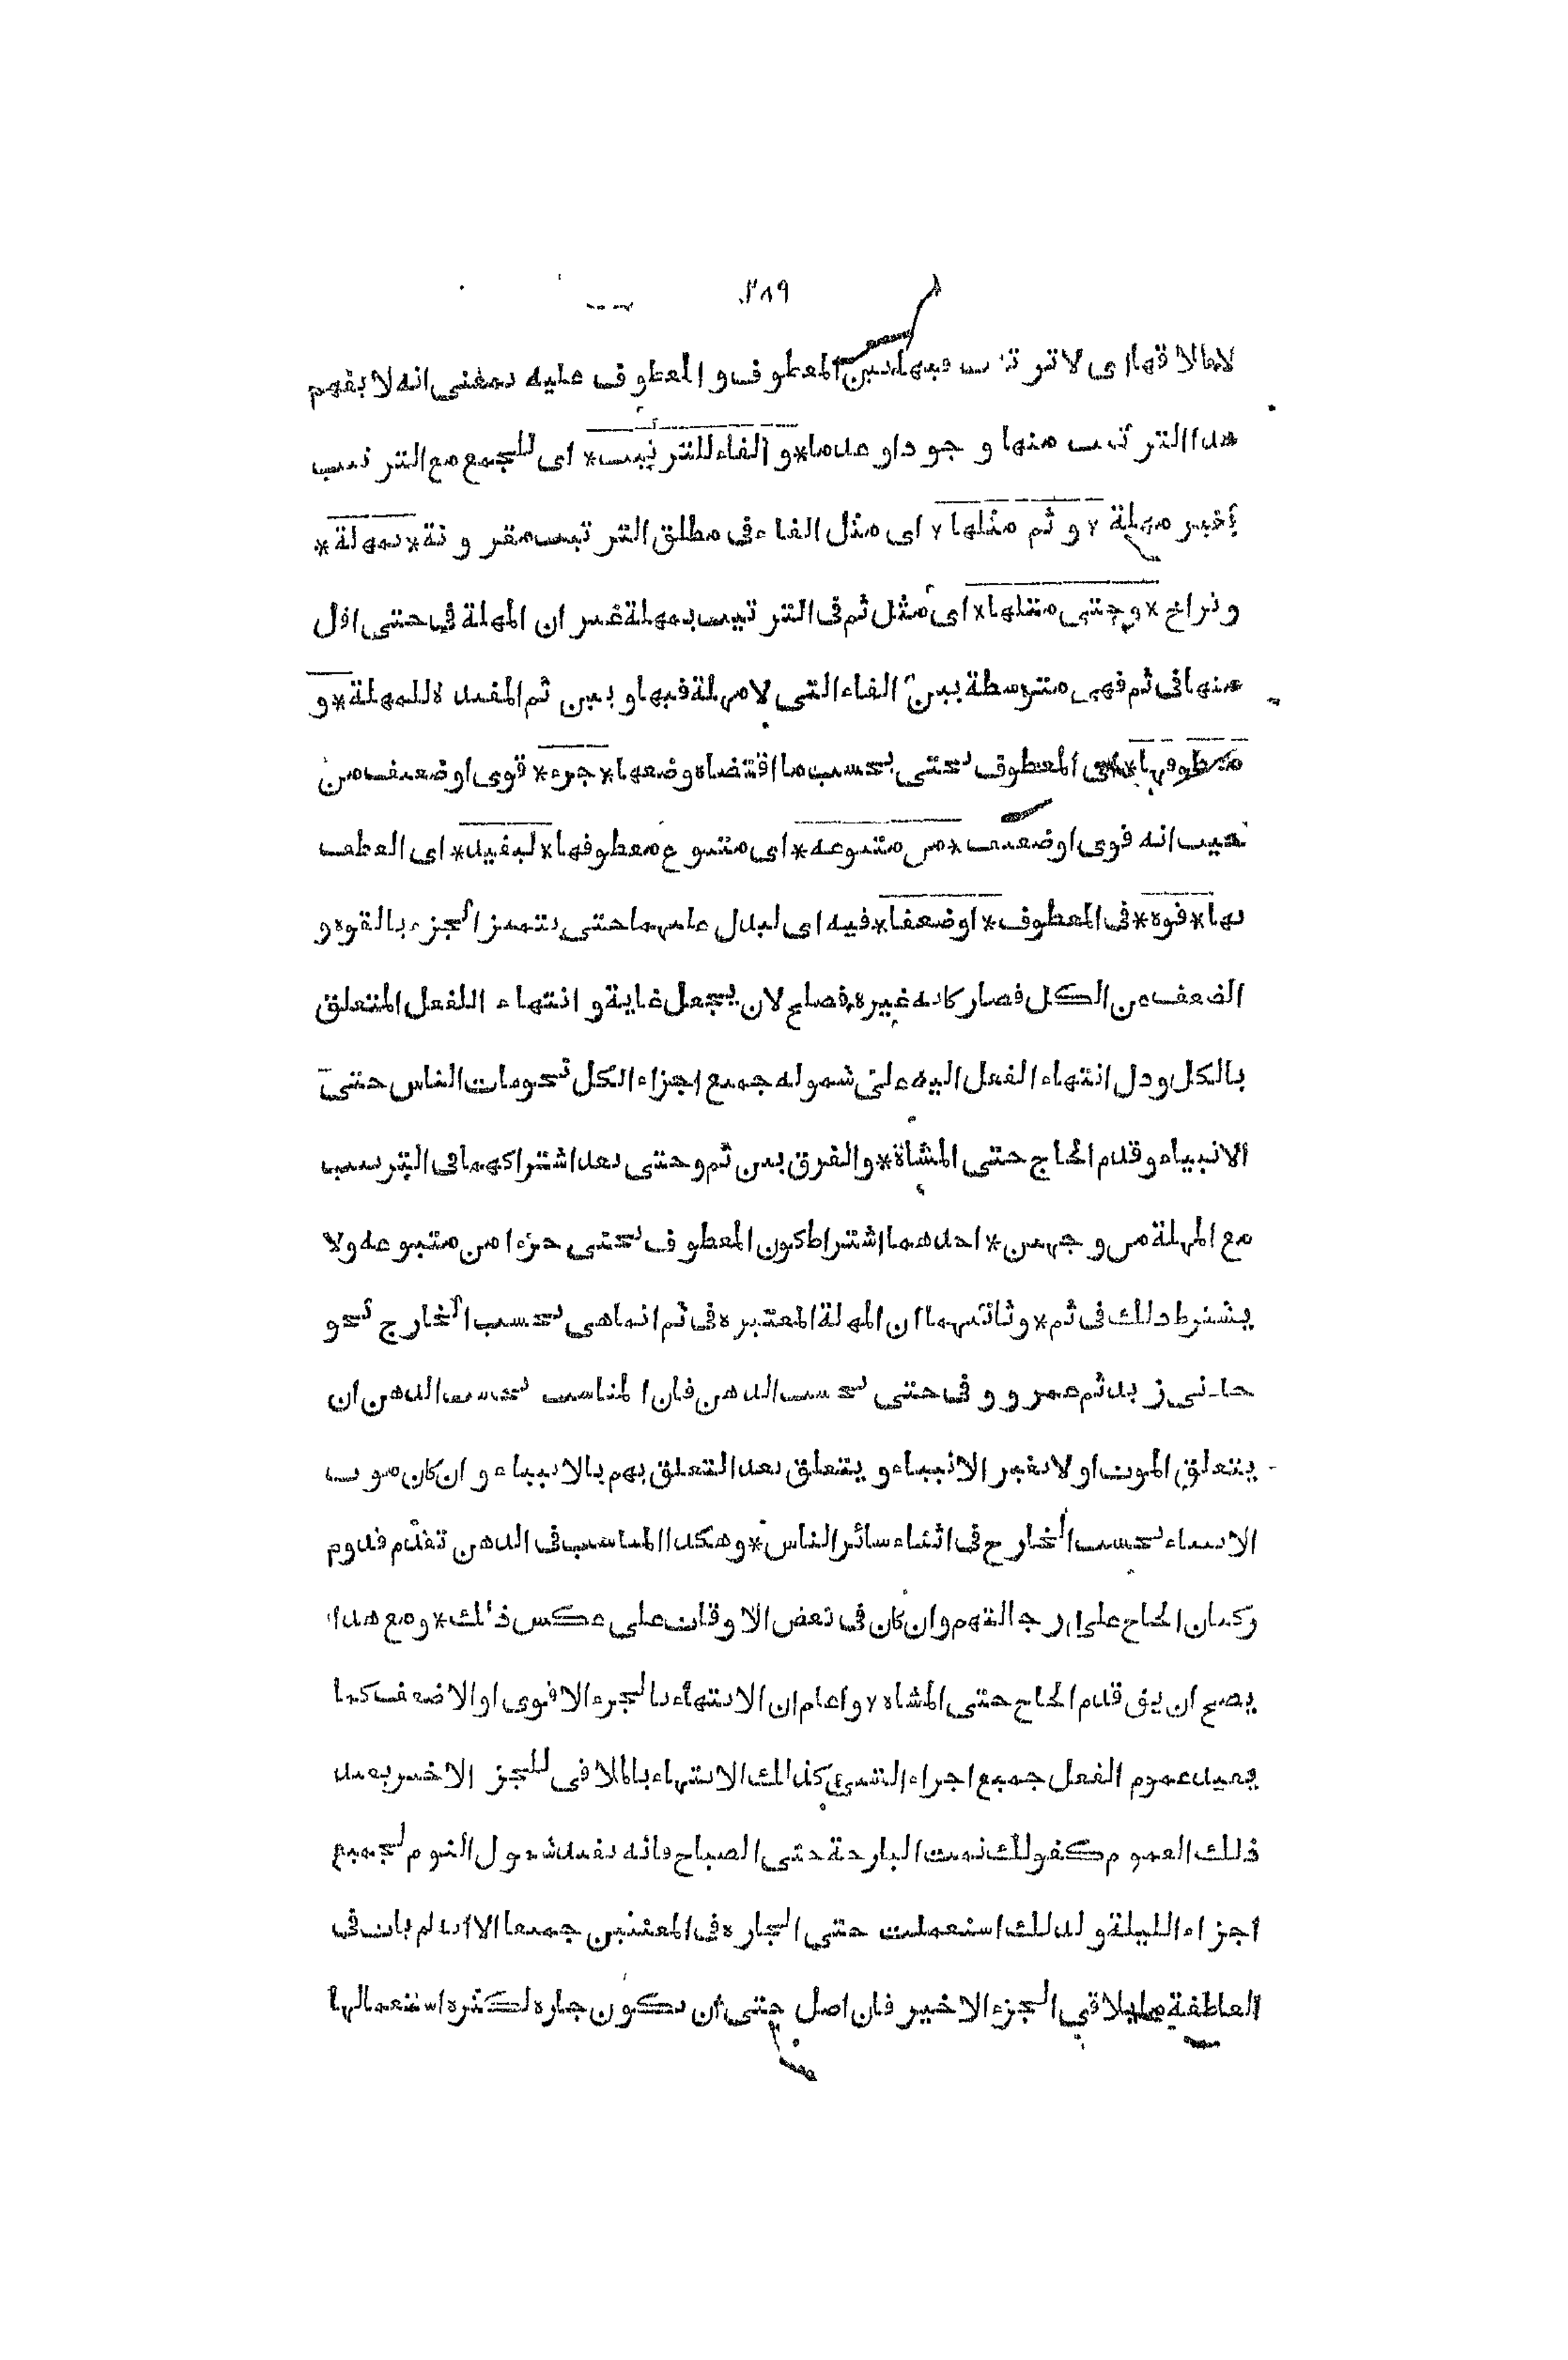 ٣٨٩
لاطلاقها اى لا ترتيب فيها بين المعطوف و المعطوف عليه بمعنى انه لا يفهم
هذا الترتيب منها وجودا و عدما * و الفاء للترتيب * اى للجمع مع الترتيب
بغير مهلة * و ثم مثلها * اى مثل الفاء فى مطلق الترتيب مقرونة * بمهلة *
و تراخ * و حتى مثلها * اى مثل ثم فى الترتيب بمهلة غير ان المهلة فى حتى اقل
منها فى ثم فهى متوسطة بين الفاء التى لا مهلة فيها و بين ثم المفيدة للمهلة * و
معطوفها * اى المعطوف بحتى بحسب ما اقتضاه وضعها * جزء * قوى او ضعيف من
حيث انه قوى او ضعيف * من متبوعه * اى متبوع معطوفها * ليفيد * اى العطف
بها * قوة * فى المعطوف * او ضعفا * فيه اى ليدل عليهما حتى يتميز الجزء بالقوة و
الضعف عن الكل فصار كانه غيره فصلح لان يجعل غاية و انتهاء اللفعل المتعلق
بالكل و دل انتهاء الفعل اليه على شموله جميع اجزاء الكل نحو مات الناس حتى
الانبياء و قدم الحاج حتى المشاة * و الفرق بين ثم و حتى بعد اشتراكهما فى الترتيب
مع المهلة من وجهين * احدهما اشتراط كون المعطوف بحتى جزءا من متبوعه و لا
يشترط ذلك فى ثم * و ثانيهما ان المهلة المعتبرة فى ثم انما هى بحسب الخارج نحو
جاءنى زيد ثم عمرو و فى حتى بحسب الذهن فان المناسب بحسب الذهن ان
يتعلق الموت اولا بغير الانبياء و يتعلق بعد التعلق بهم بالانبياء و ان كان موت
الانبياء بحسب الخارج فى اثناء سائر الناس * و هكذا المناسب فى الذهن تقدم قدوم
ركبان الحاج على رجالتهم و ان كان فى بعض الاوقات على عكس ذلك * و مع هذا
يصح ان يق قدم الحاج حتى المشاة * و اعلم ان الانتهاء بالجزء الاقوى او الاضعف كما
يفيد عموم الفعل جميع اجزاء الشىء كذلك الانتهاء بالملاقى للجزء الاخير يفيد
ذلك العموم كقولك نمت البارحة حتى الصباح فانه يفيد شمول النوم لجميع
اجزاء الليلة و لذلك استعملت حتى الجارة فى المعنيين جميعا الا انه لم يات فى
العاطفة ما يلاقى الجزء الاخير فان اصل حتى ان يكون جارة لكثرة استعمالها